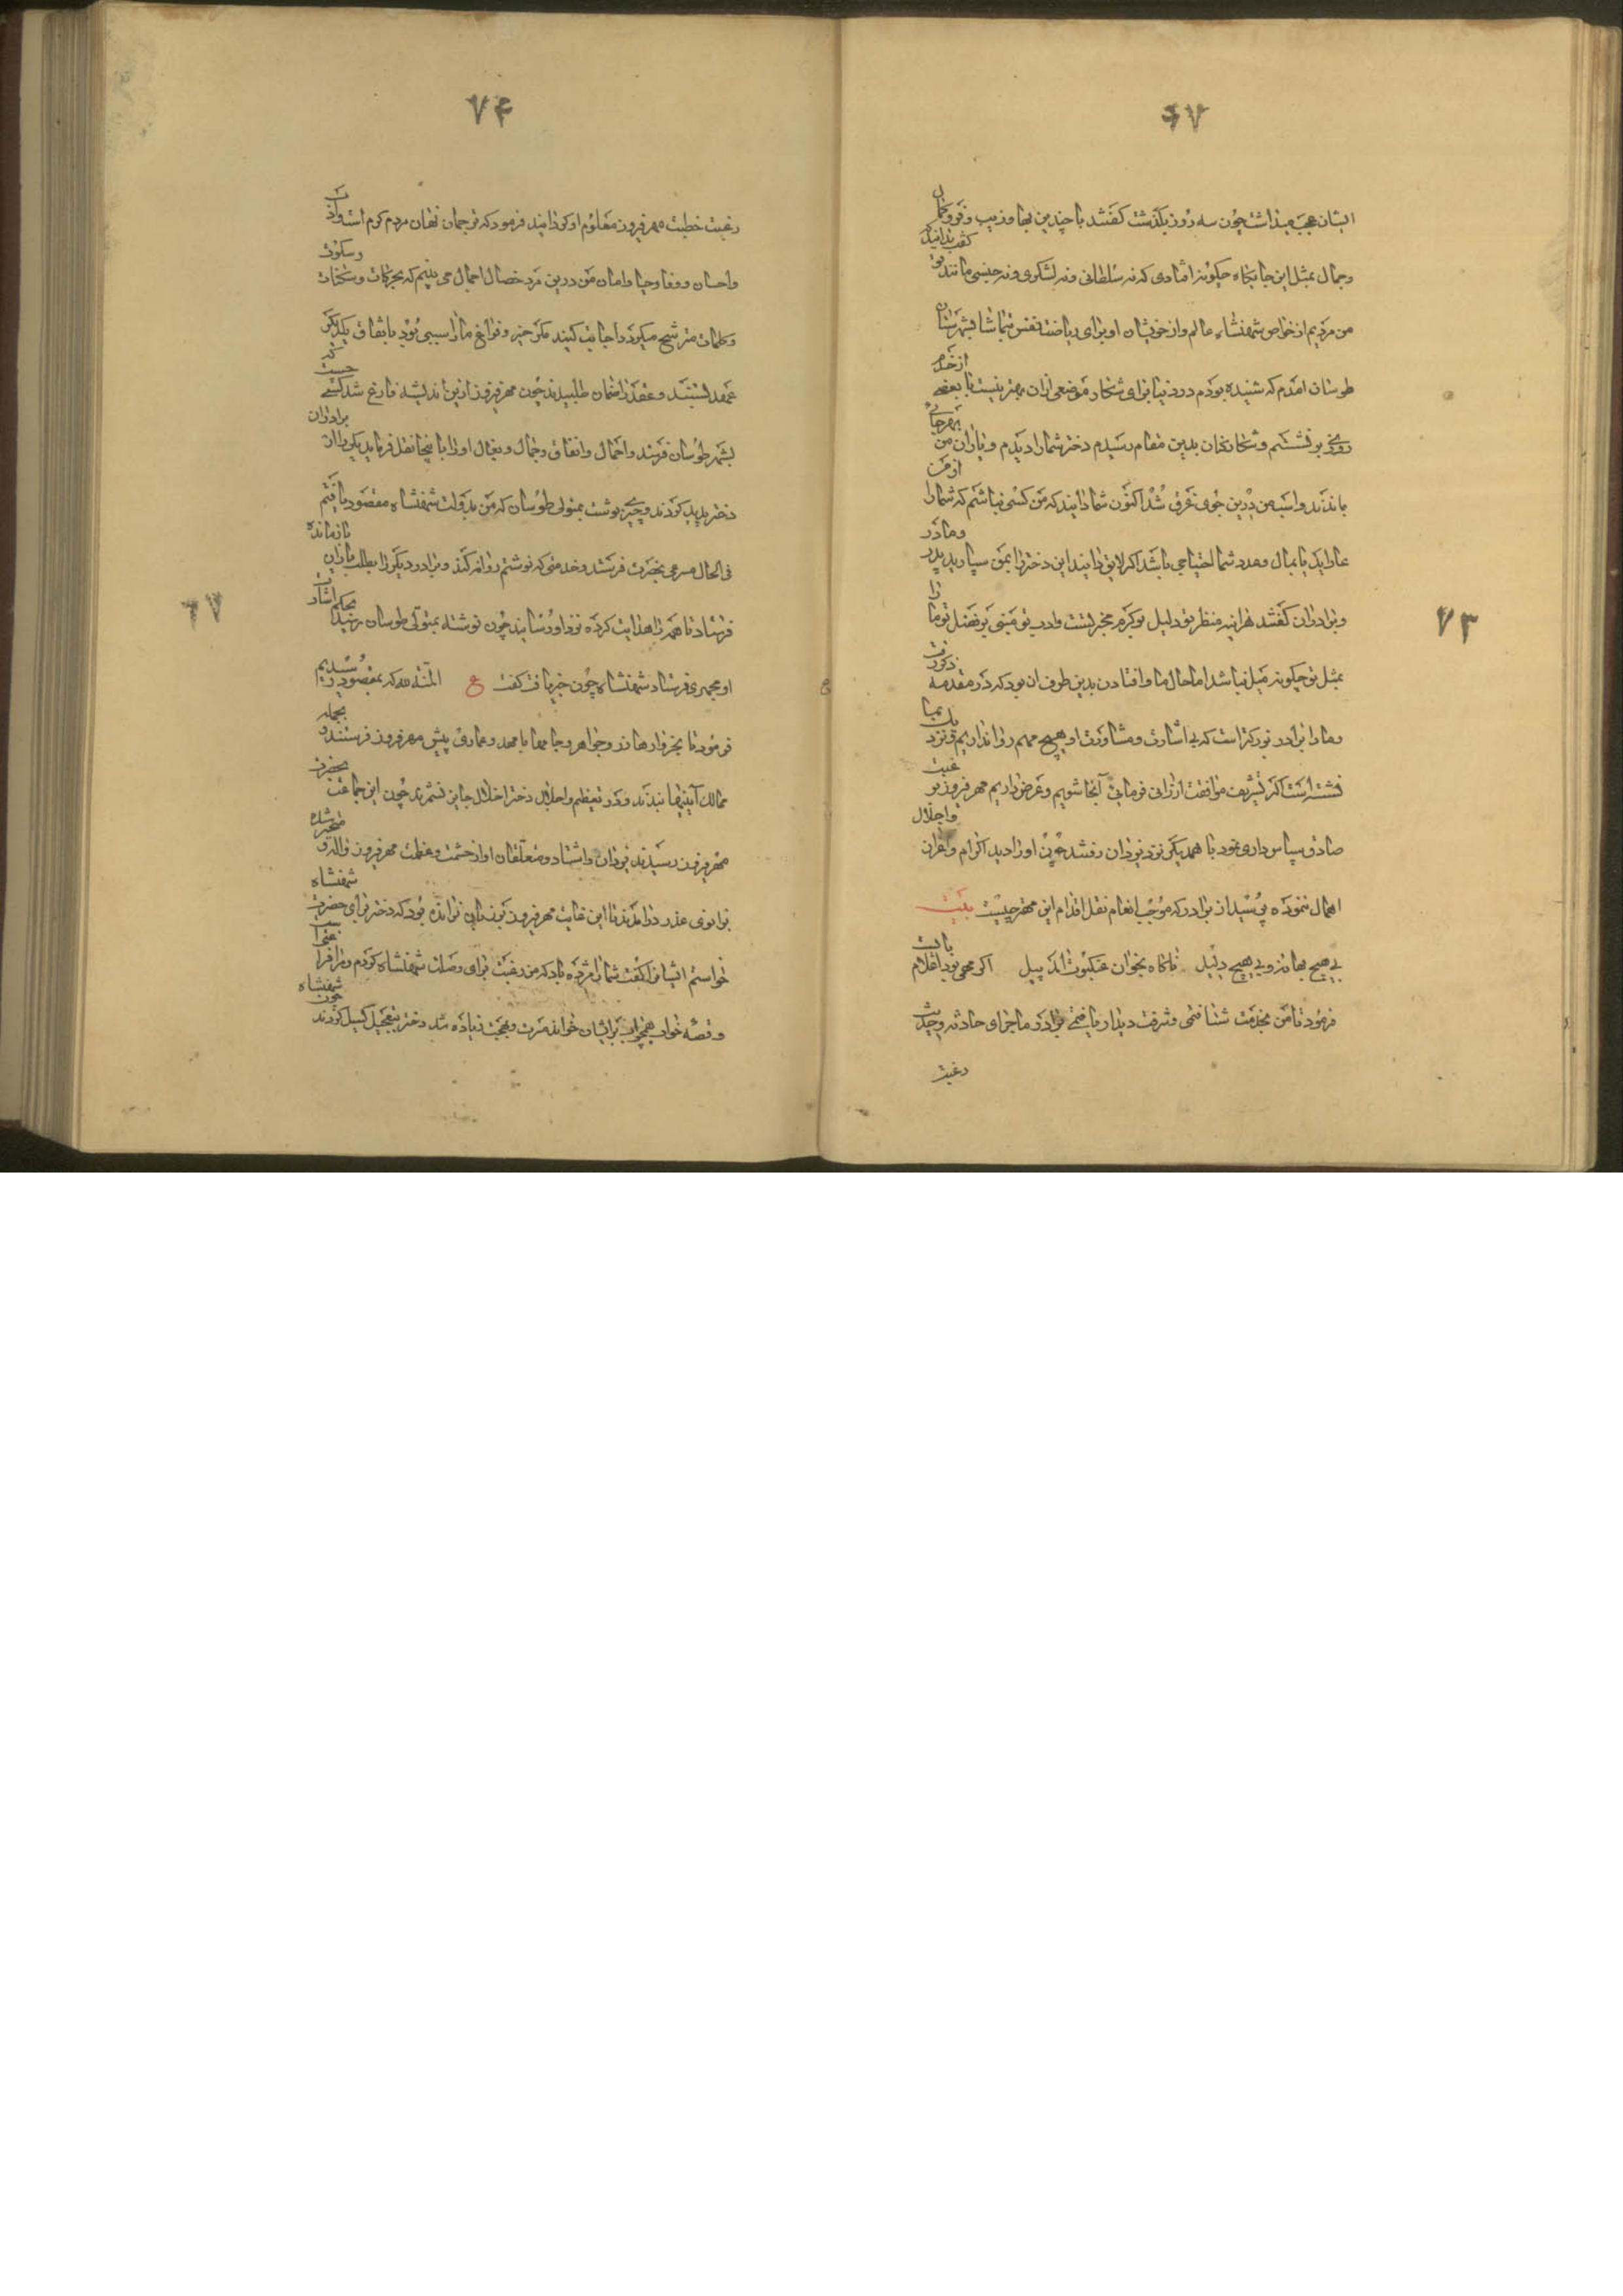 ۷۳
ایشان عجب میداشت چون سه روز بگذشت گفتند با چندین بها و زیب و فر و کمال
و جمال بمثل این جایگاه چگونه افتادی که نه سلطانی و نه لشکری و نه جنسی مانند تو گفت بدانید
من مردیم از خواص شهنشاه عالم و از خویشان او برای ریاضت نفس بتماشا بشهرستان
طوسان امدم که شنیده بودم در دنیا برای شکار موضعی ازان بهتر نیست با بعضی از خدم
روزی بر نشستم و شکارکنان بدین مقام رسیدم دختر شما را دیدم و یاران من بهر جای
باندند و اسب من درین جوی غرق شد اکنون شما دانید که من کسی نباشم که شما را از من
عار اید یا بمال و مدد شما احتیاجی باشد اگر لایق دانید این دختر را بمن سپارید پدر و مادر
و برادران گفتند هراینه منظر تو دلیل بر کرم مخبر تست و ادب تو مبنی بر فضل تو ما را
بمثل تو چگونه میل نباشد اما حال ما و افتادن بدین طرف ان بود که در مقدمه ذکر رفت
و ما را برادر بزرگتر است که بی اشارت و مشاورت او هیچ مهم روا نداریم و نزد
نشسته است اگر تشریف موافقت ارزانی فرمایی آنجا شویم و عرض داریم مهرفیروز بر غبت
صادق سپاس داری نمود با همدیگر نزد یزدان رفتند چون او را دید اکرام و اعزاز و اجلال
اهمال ننموده پرسید از برادر که موجب انعام نقل اقدام این مهتر چیست بیت
بی هیچ بهانه و بی هیچ دلیل ناگاه بخوان عنکبوت آمد پیل اگر محمی نبود اعلام بایست
فرمود تا من بخدمت شتافتی و شرف دیدار یافتمی برادر ماجرای حادثه و حدیث
رغبت
۷۳
۷۴
رغبت خطبت مهرفیروز معلوم او گردانید فرمود که ترجمان نهان مردم کرم است و ادب
و احسان و وفا و حیا و امان من درین مرد خصال اجمال می بینم که بحرکات و سکنات و سکون
و کلمات مترشح میگردد اجابت کنید مگر خیر و فراغ ما را سببی بود باتفاق یکدیگر
عهد بستند و عقد را ضمان طلبیدند چون مهرفیروز ازین اندیشه فارغ شد کسی جست که
بشهر طوسان فرستد و احمال و اثقال و جمال و بغال او را بانجا نقل فرماید یکی را از برادران
دختر پدید کردند و چیزی نوشت بمتولی طوسان که من بدولت شهنشاه مقصود یافتم
فی الحال مسرعی بحضرت فرستد و خدمتی که نوشتم روانه کند و برادر دیگر را بطلب یاران بازمانده
فرستاد تا همه را هدایت کرده نزد او رسانید چون نوشته بمتولی طوسان رسید بحکم اشارت
او مجمزی فرستاد شهنشاه چون خبر یافت گفت ع المنة لله که بمقصود رسیدیم
فرمود تا بخروارها زر و جواهر و جامها با مهد و عماری پیش مهرفیروز فرستند و بجمله
ممالک آیینها ببندند و در تعظیم و اجلال دختر اخلال جایز نشمرند چون این جماعت بحضرت
مهرفیروز رسیدند یزدان و اشتاد و متعلقان او از حشمت و عظمت مهرفیروز واله و متحیر شده
بزانوی عذر درآمدند تا این غایت مهرفیروز بر زبان نرانده بود که دختر برای حضرت شهنشاه
خواستم ایشانرا گفت شما را مژده باد که من رغبت برای وصلت شهنشاه کردم و مرا فرا
و قصه خواب همچنان برایشان خواند مسرت و بهجت زیاده شد دختر بتعجیل گسیل کردند چون شهنشاه